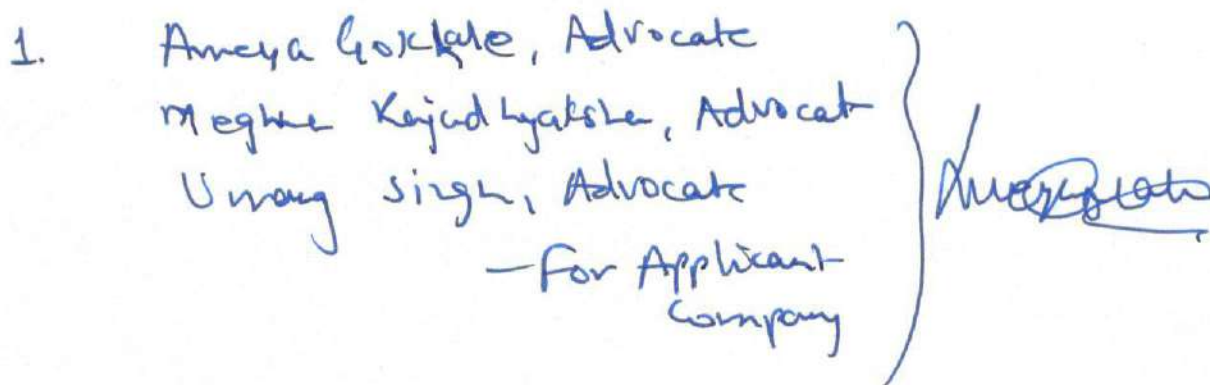 1. Ameya Gokhale, Advocate
Meghna Rajadhyaksha, Advocat
Umang Singh, Advocate
—For Applicant
Company